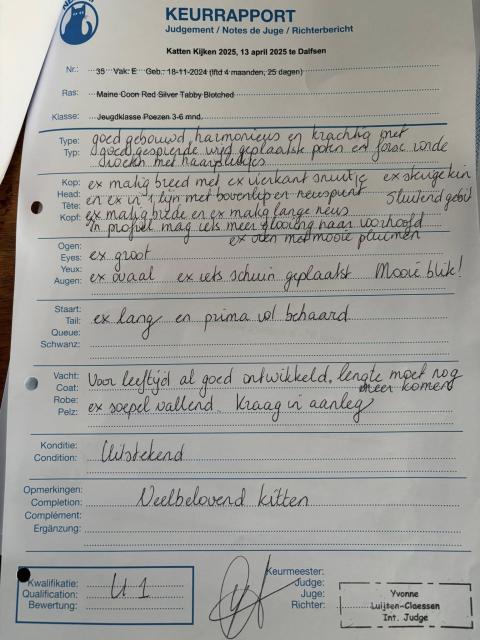 KEURRAPPORT
Judgement / Notes de Juge / Richterbericht
Katten Kijken 2025, 13 april 2025 te Dalfsen
Nr.: 35 Vak: E Geb.: 18-11-2024 (lftd 4 maanden, 25 dagen)
Ras: Maine Coon Red Silver Tabby Blotched
Klasse: Jeugdklasse Poezen 3-6 mnd.
Type: goed gebouwd, harmonieus en krachtig met
Typ: goed gespierde wijd geplaatste poten en forse ronde
voeten met haarpluktjes
Kop: ex matig breed met ex vierkant snuitje ex stevige kin
Head: en ex in 1 lijn met bovenlip en neuspunt sluitend gebit
Tête: ex matig brede en ex matig lange neus
Kopf: In profiel mag iets meer glooiing naar voorhoofd
ex oren met mooie pluimen
Ogen:
Eyes: ex groot
Yeux:
Augen: ex ovaal ex iets schuin geplaatst Mooie blik!
Staart:
Tail: ex lang en prima vol behaard
Queue:
Schwanz:
Vacht: Voor leeftijd al goed ontwikkeld, lengte moet nog
Coat: meer komen
Robe: ex soepel vallend. Kraag in aanleg
Pelz:
Konditie:
Condition: Uitstekend
Opmerkingen:
Completion: Veelbelovend kitten
Complément:
Ergänzung:
Kwalifikatie:
Qualification: U 1
Bewertung:
Keurmeester:
Judge:
Juge:
Richter:
Yvonne
Luijten-Claessen
Int. Judge